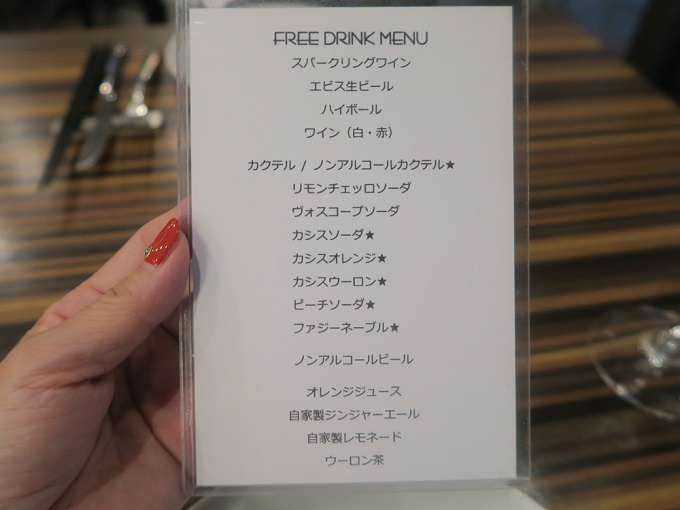 FREE DRINK MENU
スパークリングワイン
エビス生ビール
ハイボール
ワイン（白・赤）
カクテル / ノンアルコールカクテル★
リモンチェッロソーダ
ヴォスコープソーダ
カシスソーダ★
カシスオレンジ★
カシスウーロン★
ピーチソーダ★
ファジーネーブル★
ノンアルコールビール
オレンジジュース
自家製ジンジャーエール
自家製レモネード
ウーロン茶